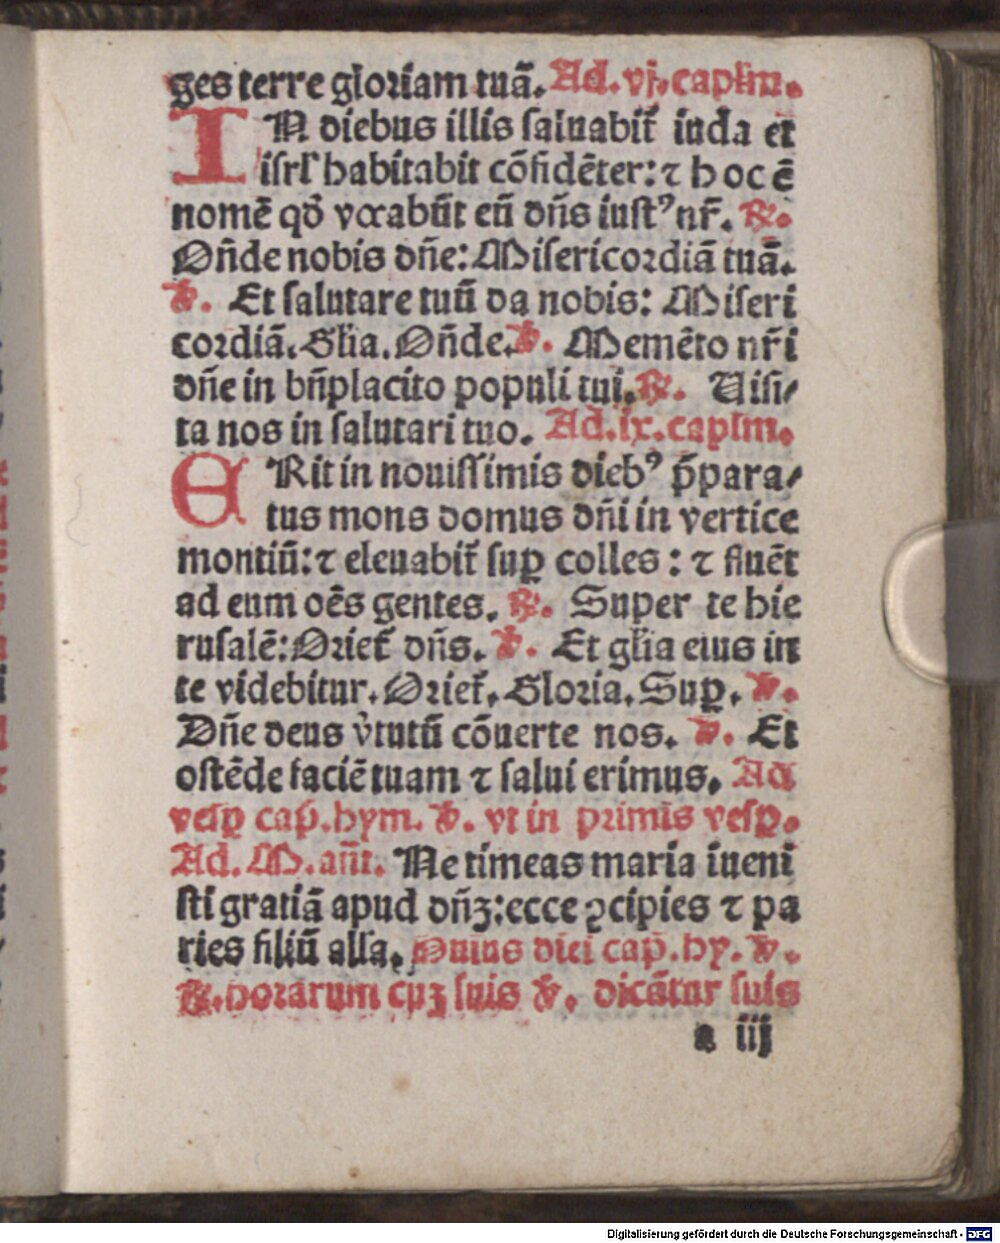 ges terre gloriam tuā. Ad. vj. caplm.
IN diebus illis saluabit᷑ iuda et
isrl' habitabit cōfidēter: ⁊ hoc ē
nomē qð vocabūt eū dñs iustꝰ nr̄. ℟.
Oñde nobis dñe: Misericordiā tuā.
℣. Et salutare tuū da nobis: Miseri
cordiā. Glia. Oñde. ℣. Memēto nr̄i
dñe in bñplacito populi tui. ℟. Uisi⸗
ta nos in salutari tuo. Ad. ix. caplm.
ERit in nouissimis diebꝰ p̄para⸗
tus mons domus dñi in vertice
montiū: ⁊ eleuabit᷑ suꝑ colles: ⁊ fluēt
ad eum oēs gentes. ℟. Super te hie
rusalē: Oriet᷑ dñs. ℣. Et glia eius in
te videbitur. Oriet᷑. Gloria. Suꝑ. ℣.
Dñe deus v̓tutū cōuerte nos. ℣. Et
ostēde faciē tuam ⁊ salui erimus. Ad
vesꝑ cap̄. hym. ℣. vt in primis vesꝑ.
Ad. M. añt. Ne timeas maria iueni
sti gratiā apud dñʒ: ecce ꝯcipies ⁊ pa
ries filiū alla. Huius diei cap̄. hy. ℣.
℟. horarum cuʒ suis ℣. dicātur suis
a iij
Digitalisierung gefördert durch die Deutsche Forschungsgemeinschaft - DFG